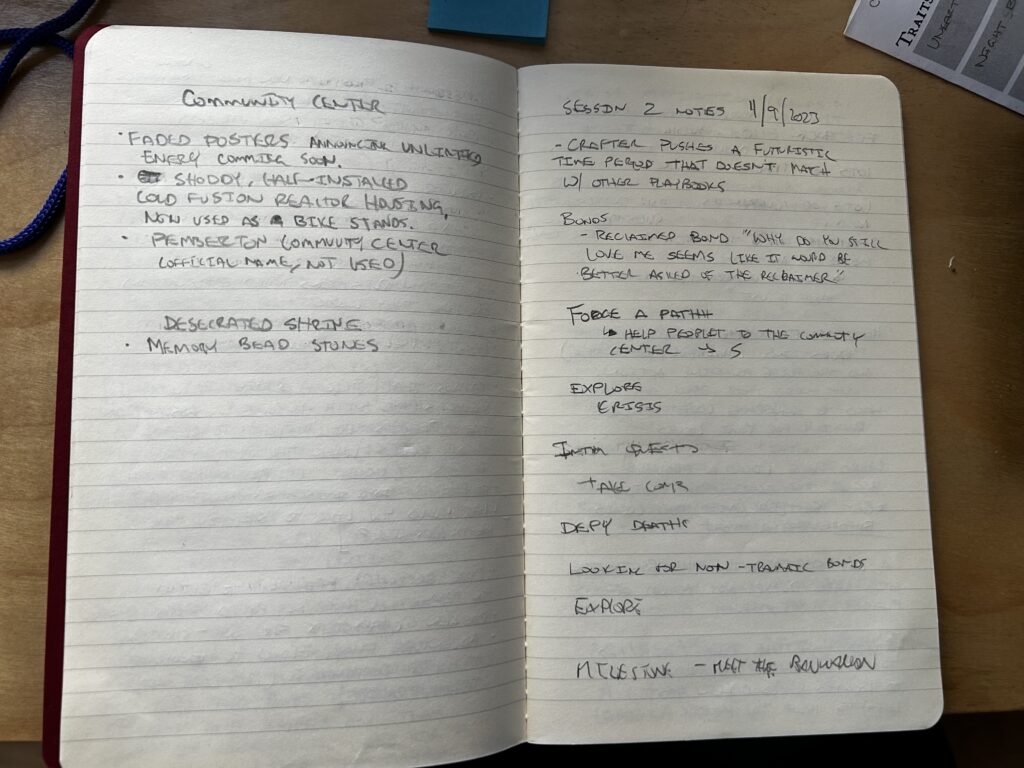 COMMUNITY CENTER
• FADED POSTERS ANNOUNCING UNLIMITED
ENERY COMMING SOON.
• SHODDY, HALF-INSTALLED
COLD FUSION REACTOR HOUSING,
NOW USED AS BIKE STANDS.
• PEMBERTON COMMUNITY CENTER
(OFFICIAL NAME, NOT USED)
DESECRATED SHRINE
• MEMORY BEAD STONES
SESSION 2 NOTES 4/9/2023
- CRAFTER PUSHES A FUTURISTIC
TIME PERIOD THAT DOESN'T MATCH
W/ OTHER PLAYBOOKS
BONDS
- RECLAIMED BOND "WHY DO YOU STILL
LOVE ME SEEMS LIKE IT WOULD BE
BETTER ASKED OF THE RECLAIMER"
FORGE A PATH
↳ HELP PEOPLE TO THE COMMUNITY
CENTER → 5
EXPLORE
CRISIS
TAKE
DEFY DEATH
LOOKING FOR NON-TRAMATIC BONDS
EXPLORE
MILESTONE - MEET THE
TRAITS
NIGHT